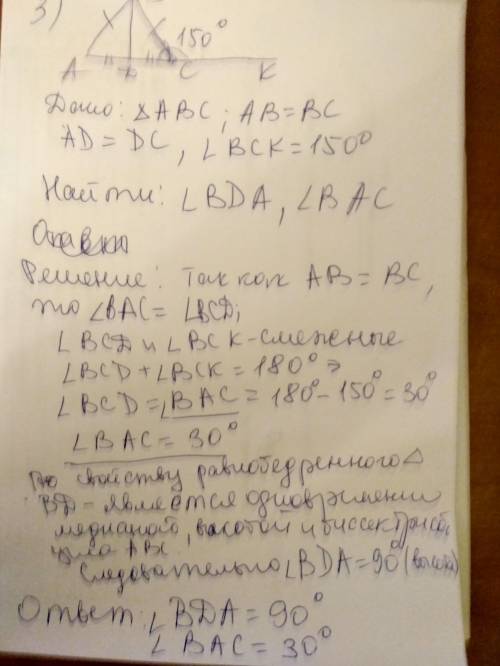 3)
150°
A D C K
Дано: △ABC; AB=BC
AD=DC, ∠BCK=150°
Найти: ∠BDA, ∠BAC
Решение: Так как AB=BC,
то ∠BAC=∠BCD;
∠BCD и ∠BCK-смежные
∠BCD+∠BCK=180° ⇒
∠BCD=∠BAC=180°-150°=30°
∠BAC=30°
По свойству равнобедренного △
BD-является одновременно
медианой, высотой и биссектрисой
угла ABC.
Следовательно ∠BDA=90° (высота)
Ответ: ∠BDA=90°
∠BAC=30°